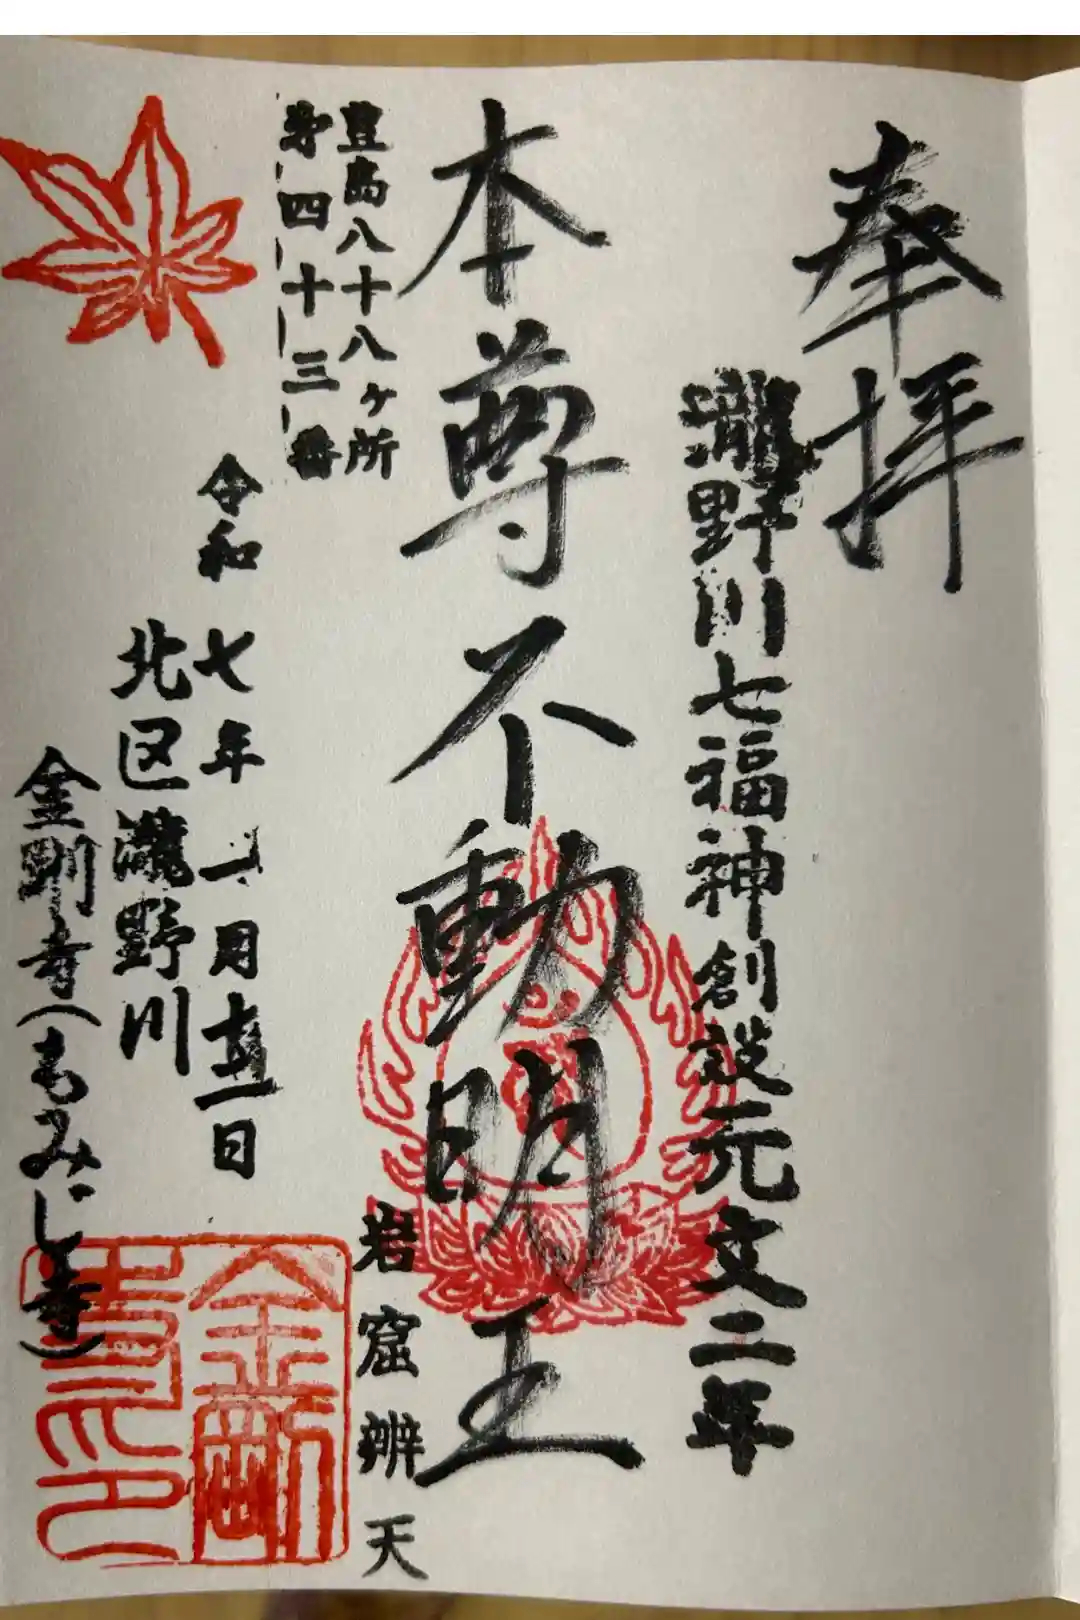 奉拝
瀧野川七福神創設元文二年
本尊不動明王
岩窟辨天
豊島八十八ヶ所
第四十三番
令和七年 月 日
北区瀧野川
金剛寺(もみじ寺)
金剛
寺印